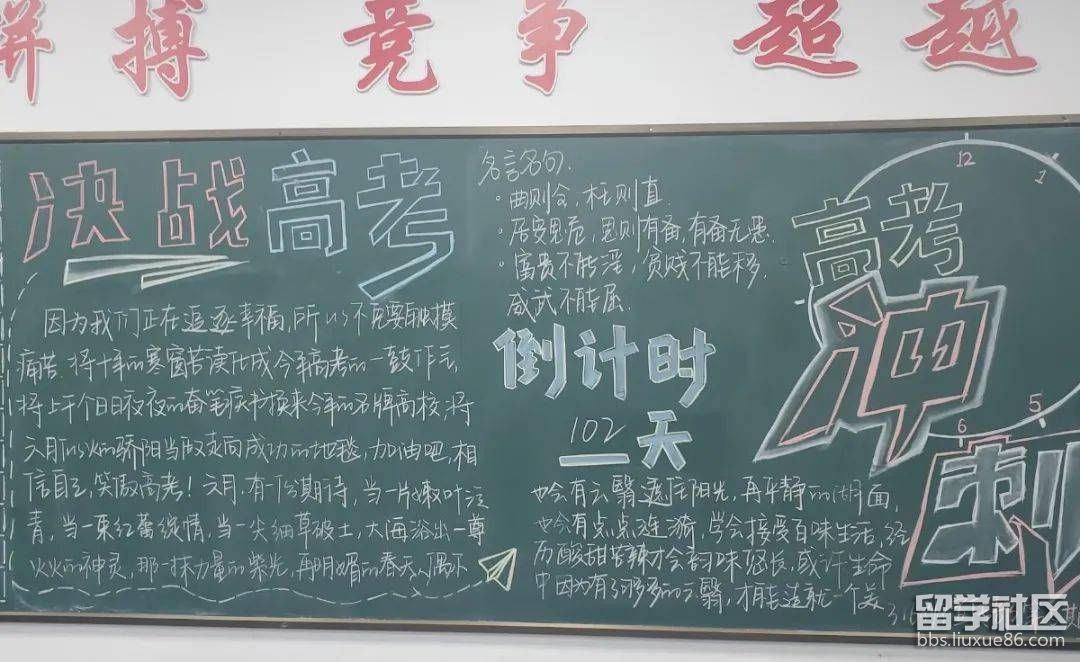 拼搏 竞争 超越
决战高考
因为我们正在追逐幸福,所以不克要触摸
痛苦.将十年的寒窗苦读化成今年高考的一鼓作气
将上千个日日夜夜的奋笔疾书换来今年的名牌高校;将
六月似火的骄阳当做走向成功的地毯,加油吧,相
信自己,笑傲高考!六月,有一份期待,当一片嫩叶泛
青,当一束红蕾绽情,当一尖细草破土,大海浴出一尊
火火的神灵,那一抹力量的紫光,再明媚的春天,偶尔
名言名句.
·曲则全,枉则直.
·居安思危,思则有备,有备无患.
·富贵不能淫,贫贱不能移,
威武不能屈.
倒计时
102天
也会有云翳遮住阳光,再平静的湖面
也会有点点涟漪,学会接受百味生活,经
历酸甜苦辣才会韵味悠长,或许生命
中因为有了多多的云翳,才能造就一个美
12
1
高考
冲
5
6
刺
留学社区
bbs.liuxue86.com